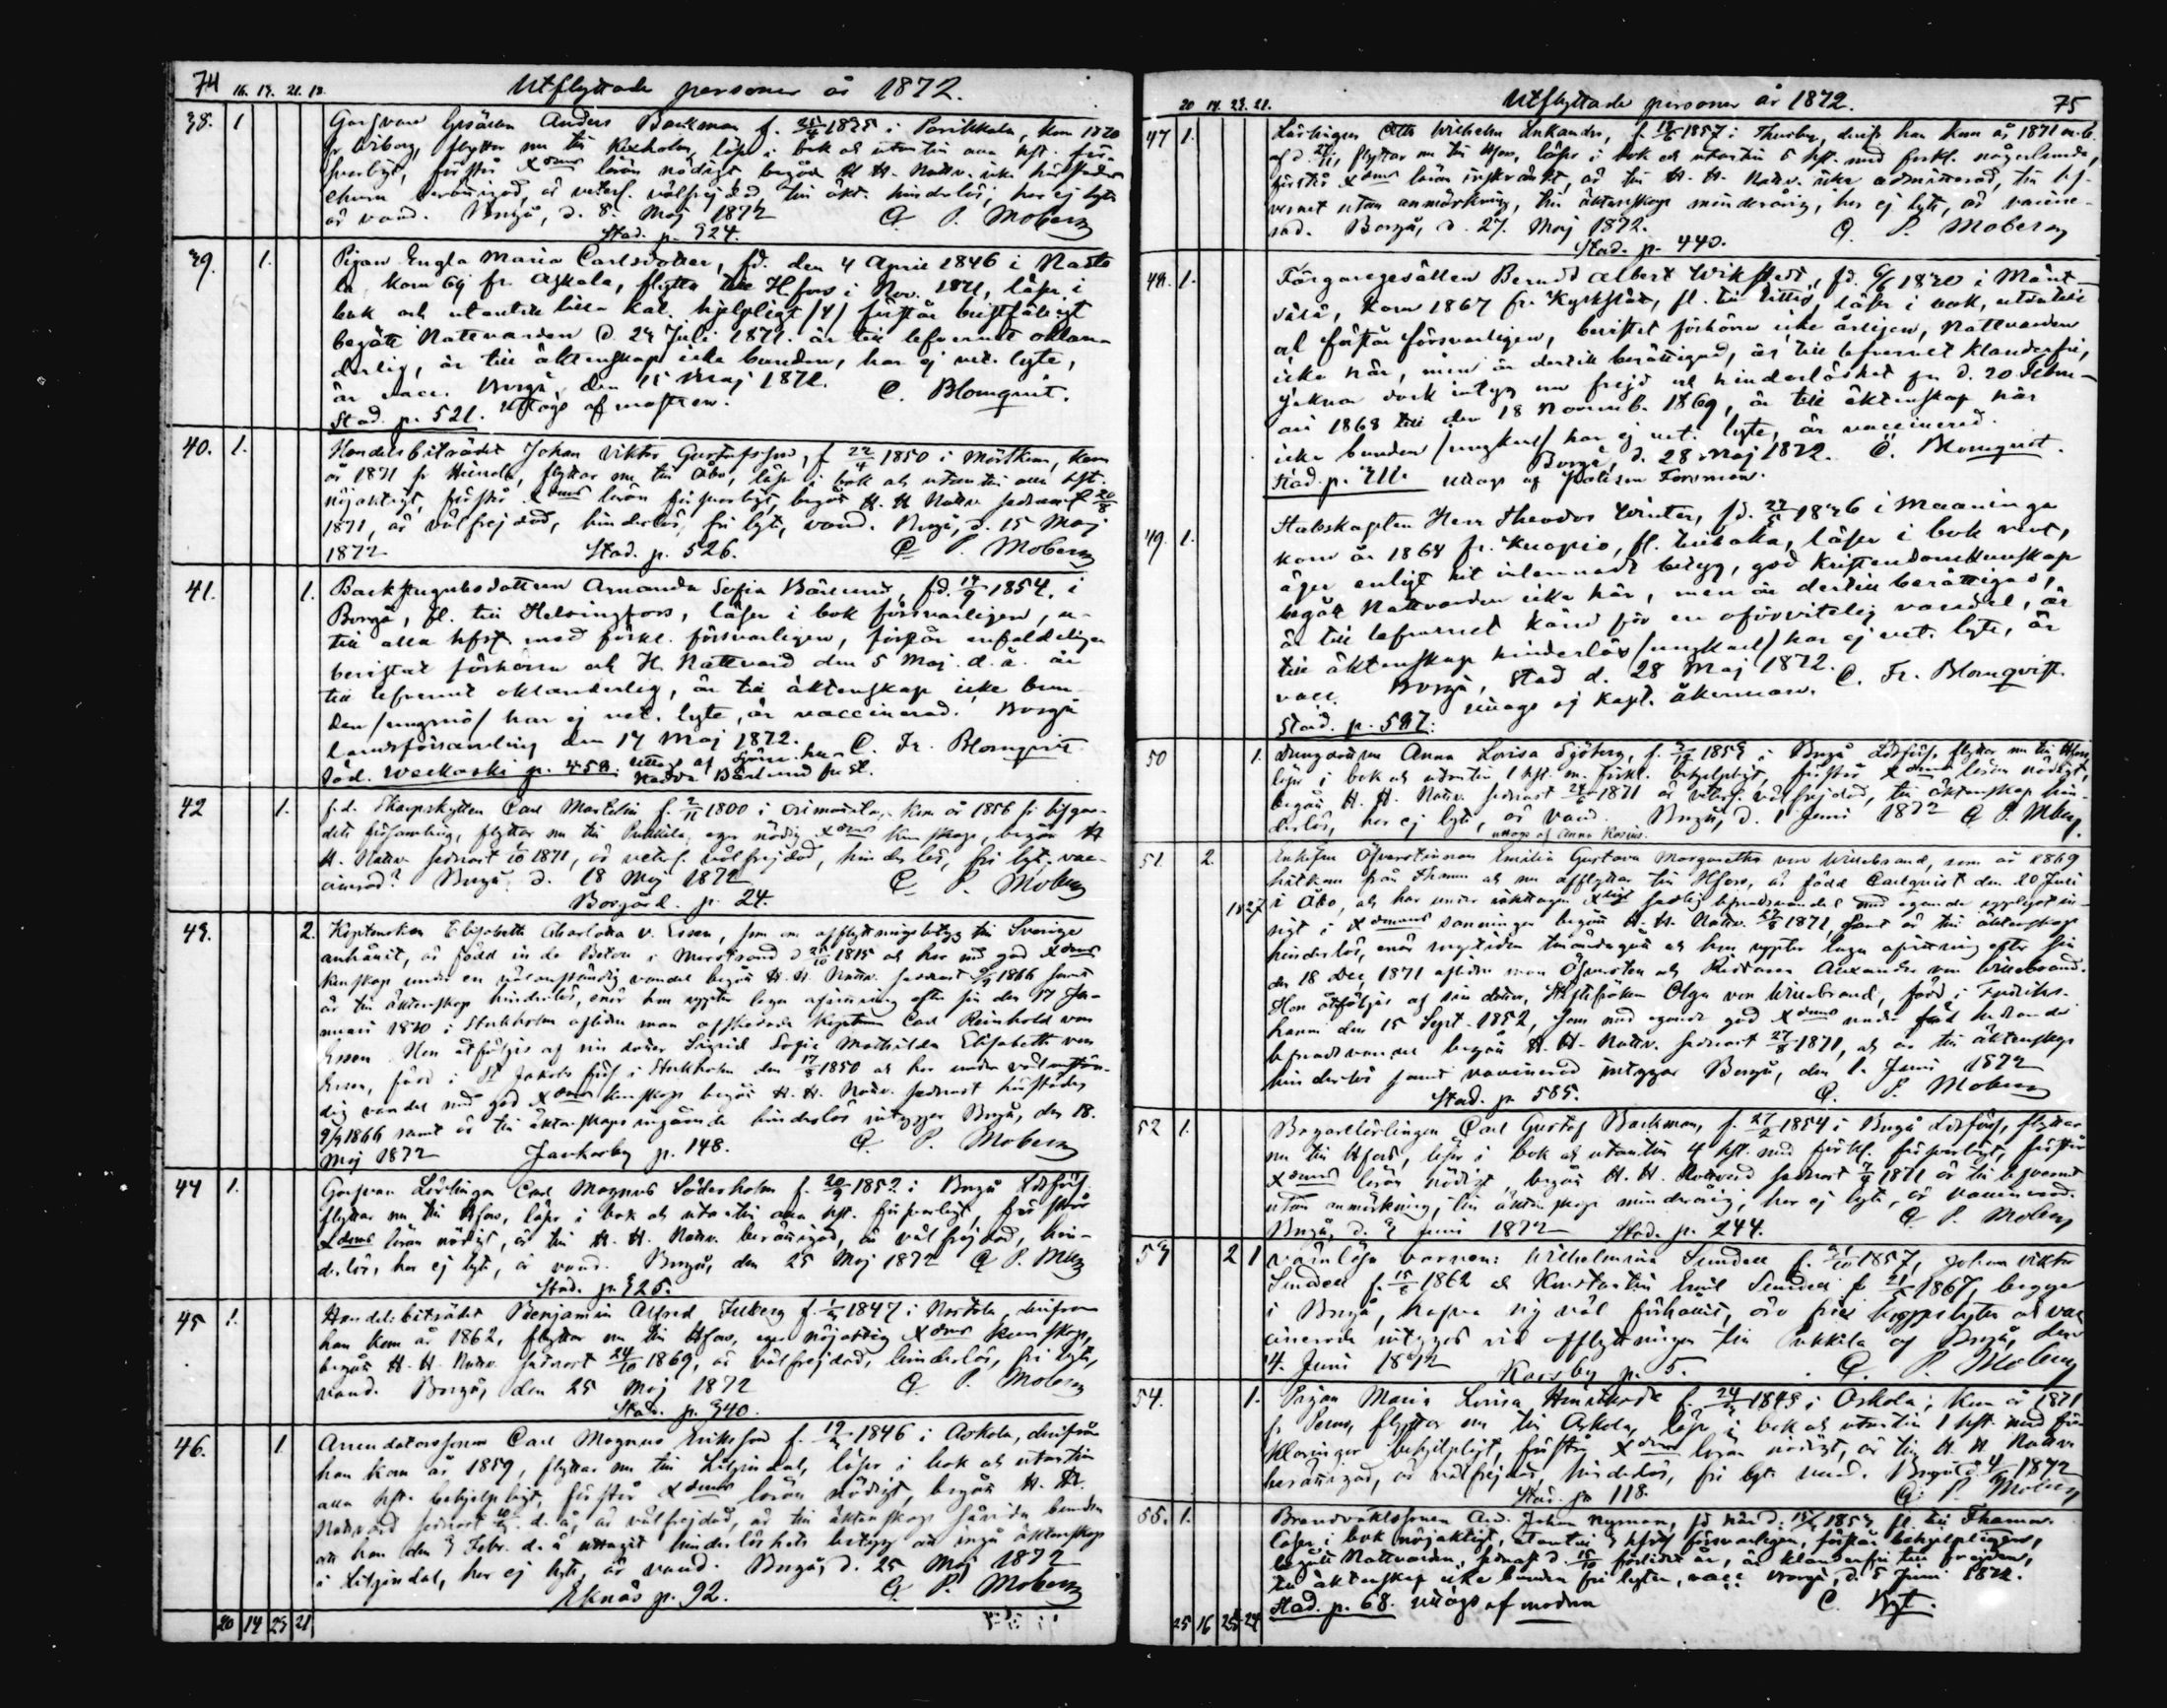 74 16. 13. 21. 18. Utflyttade personer år 1872.
38. 1 Garfvare Gesällen Anders Backman f. 25/4 1825 i Parikkala, kom 1870
fr Wiborg, flyttar nu till Kexholm, läser i bok och utantill alla hft. för-
svarligt, förstår Xdoms läran nödigt, begått H. H. Nattv. icke härstädes
ehuru berättigad, är veterl. välfrejdad, till äkt. hinderlös, har ej lyte
är vaccd. Borgå, d. 8. Maj 1872 C. P. Moberg
Stad. p. 324.
39. 1. Pigan Engla Maria Carlsdotter, fd. den 4 April 1846 i Nasto
la kom 69 fr. Askola, flyttar till Hfors i Nov. 1871, läser i
bok och utantill lilla kat. hjelpligt /4/ förstår bristfäligt
begått Nattvarden d. 24 Juli 1871. är till lefvernet oklan-
derlig, är till äktenskap icke bunden, har ej vet. lyte,
är vacc. Borgå, den 15 Maj 1872. C. Blomqvist.
Stad. p. 521. uttogs af mostren.
40. 1. Handelsbiträdet Johan Viktor Gustafsson, f. 22/4 1850 i Mörskom, kom
år 1871 fr Heinola, flyttar nu till Åbo, läser i bok och utantill alla hft.
nöjaktigt, förstår Xdoms läran försvarligt, begått H. H. Nattv. sednast 20/8
1871, är välfrejdad, hinderlös, fri lyte, vaccd. Borgå, d. 15 Maj
1872 Stad. p. 526. C. P. Moberg
41. 1. Backstugubsdottren Amanda Sofia Bärlund, fd. 14/9 1854, i
Borgå, fl. till Helsingfors, läser i bok försvarligen, u-
till alla hfst. med förkl. försvarligen, förstår enfaldeligen
bevistat förhören och H. Nattvard den 5 Maj d. å. är
till lefvernet oklanderlig, är till äktenskap icke bun-
den /ungmö/ har ej vet. lyte, är vaccinerad. Borgå
landsförsamling den 17 Maj 1872. C. Fr. Blomqvist.
Söd. Weckoski p. 458.
42 1. f.d. Skarpskytten Carl Martelin f. 2/11 1800 i Orimattila, kom år 1856 fr
dets församling, flyttar nu till Pukkila, eger nödig Xdoms kunskap, begått H
H. Nattv. sednast 1/10 1871, är veterl. välfrejdad, hinderlös, fri lyte, vac-
cinerad? Borgå, d. 18 Maj 1872 C. P. Moberg
Borgård. p. 24.
43. 2. Kaptenskan Elisabeth Charlotta v. Essen, som om afflyttningsbetyg till Sverige
anhållit, är född in de Betou i Marstrand d 25/10 1815 och har med god Xdoms
kunskap under en välanständig vandel begått H. H. Nattv. sednast 9/9 1866 samt
är till äktenskap hinderlös, enär hon uppter laga afvittring efter sin den 17 Ja-
nuari 1870 i Stockholm aflidne man afskedade Kapten Carl Reinhold von
Essen. Hon åtföljes af sin dotter Sigrid Sofie Mathilda Elisabeth von
Essen, född i St Jakobs förs i Stockholm den 17/8 1850 och har under välanstän-
dig vandel med god Xdoms kunskap begått H. H. Nattv. sednast härstädes
9/9 1866 samt är till äktenskaps ingående hinderlös intygar Borgå, den 18.
Maj 1872 Jackarby p. 148. C. P. Moberg
44 1. Garfvare Lärlingen Carl Magnus Söderholm f. 20/9 1852 i Borgå Ldsförs.
flyttar nu till Hfors, läser i bok och utantill alla hft. försvarligt, förstår
Xdoms läran nödigt, är till H. H. Nattv. berättigad, är välfrejdad, hin-
derlös, har ej lyte, är vaccd. Borgå, den 25 Maj 1872 C P. Mbg
Stad. p. 326.
45 1. Handelsbiträdet Benjamin Alfred Inberg f. 1847 i Nastola, derifrån
han kom år 1862, flyttar nu till Hfors, eger nöjaktig Xdoms kunskap,
begått H. H. Nattv. sednast 24/10 1869, är välfrejdad, hinderlös, fri lyte,
vaccd. Borgå, den 25 Maj 1872 C. P. Moberg
Stad. p. 340.
46. 1. Arrendatorssonen Carl Magnus Eriksson f. 19/2 1846 i Askola, derifrån
han kom år 1859, flyttar nu till Liljendal, läser i bok och utantill
alla hft. behjelpligt, förstår Xdoms läran nödigt, begått H. H.
Nattvard sednast d. å, är välfrejdad, är till äktenskap såvida bunden
att han den 3 Febr. d. å uttagit hinderlöshets betyg att ingå äktenskap
i Liljendal, har ej lyte, är vaccd. Borgå, d. 25 Maj 1872
Eknäs p. 92. C. P. Moberg
20 14 23 21
20 14. 23. 21. Utflyttade personer år 1872. 75
47 1. Lärlingen Otto Wilhelm Enkander, f. 18/6 1857 i Thusby, derifr han kom år 1871 m. b.
af d. 27/11, flyttar nu till Hfors, läser i bok och utantill 5 hft. med förkl. någorlunda,
förstår Xdoms läran inskränkt, är till H. H. Nattv. icke admitterad, till lef-
vernet utan anmärkning, till äktenskap minderårig, har ej lyte, är vaccine-
rad. Borgå, d. 27. Maj 1872. C. P. Moberg
Stad. p. 440.
48. 1. Färgaregesällen Berndt Albert Wikstedt, fd. 9/6 1840 i Mänt-
sälä, kom 1867 fr. Kyrkslätt, fl. till Sibbo, läser i bok, utantill
och förstår försvarligen, bevistat förhören icke årligen, Nattvarden
icke här, men är dertill berättigad, är till lefvernet klanderfri,
saknar dock intyg om frejd och hinderlöshet fr. d. 20 Febru-
ari 1868 till den 18 Novemb. 1869, är till äktenskap här
icke bunden /ungkarl/ har ej vet. lyte, är vaccinerad.
Borgå, d. 28 Maj 1872. C. Blomqvist.
Stad. p. 211. uttogs af Polisen Forsman.
49. 1. Stabskapten Herr Theodor Winter, fd. 27/5 1836 i Maaninga
kom år 1868 fr. Kuopio, fl. tillbaka, läser i bok rent,
äger enligt hit inlemnadt betyg, god Kristendomskunskap
begått Nattvarden icke här, men är dertill berättigad,
är till lefvernet känd för en oförvitelig vandel, är
till äktenskap hinderlös /ungkarl/ har ej vet. lyte, är
vacc. Borgå, Stad d. 28 Maj 1872. C. Fr. Blomqvist.
Stad. p. 587. uttogs af kapt. Åkerman.
50 1. Anna Lovisa Sjöberg, f. 1853 i Borgå Ldsförs, flyttar nu till Hfors,
läser i bok och utantill 1 hft. m. förkl. behjelpligt, förstår Xdoms läran nödigt,
begått H. H. Nattv. sednast 24/6 1871 är veterl. välfrejdad, till äktenskap hin-
derlös, har ej lyte, är vaccd. Borgå, d. 1 Juni 1872 C. P. Mberg.
uttogs af Anna Rosius.
51. 2. Enkefru Öfverstinnan Emilia Gustava Margaretha von Willebrand, som år 1869
hitkom från Thamm och nu afflyttar till Hfors, är född Carlquist den 20 Juli
1827 i Åbo, och har under iakttagen Xligt sedlig lefnadsvandel med egande upplyst in-
sigt i Xdomens sanningar begått H. H. Nattv. 27/8 1871, samt är till äktenskap
hinderlös, enär sorgtiden tilländagått och hon uppter laga afvittring efter sin
den 18 Dec. 1871 aflidne man Öfversten och Riddaren Alexander von Willebrand.
Hon åtföljes af sin dotter, Stiftsfröken Olga von Willebrand, född i Fredriks-
hamn den 15 Sept. 1852, som med egande god Xdoms under
lefnadsvandel begått H. H. Nattv. sednast 27/8 1871, och är till äktenskap
hinderlös samt vaccinerad intygar Borgå, den 1. Juni 1872
Stad. p. 585. C. P. Moberg
52 1. Bagarelärlingen Carl Gustaf Backman, f. 27/2 1854 i Borgå Ldsförs, flyttar
nu till Hfors, läser i bok och utantill 4 hft. med förkl. försvarligt, förstår
Xdoms läran nödigt, begått H. H. Nattvard sednast 1871 är till lefvernet
utan anmärkning, till äktenskap minderårig, har ej lyte, är vaccinerad.
Borgå, d. 3 Juni 1872 Stad. p. 244. C. P. Moberg
53 2 1 Värnlösa barnen: Wilhelmina Sundell f. 1857, Johan Viktor
Sundell f. 15/8 1862 och Konstantin Emil Sundell f. 21/5 1867, begge
i Borgå, hafva sig väl förhållit, äro fria kroppslyten och vac
cinerade intygas vid afflyttningen till Pukkila af Borgå, den
4. Juni 1872 Karsby p. 5. C. P. Moberg
54. 1. Pigan Maria Lovisa f. 24/3 1843 i Askola, kom år 1871
fr Perno, flyttar nu till Askola, läser i bok och utantill 1 hft. med för
klaringar behjelpligt, förstår Xdoms läran nödigt, är till H. H. Nattv
berättigad, är välfrejdad, hinderlös, fri lyte vaccd. Borgå d 4/6 1872
Stad. p. 118. C. P. Moberg
55. 1. Brandvaktssonen And. Johan Nyman, fd här d. 1853 fl. till Thamn.
läser i bok nöjaktigt, utantill 3 hfst försvarligen, förstår behjelpligen,
begått Nattvarden sednast d. 15/10 förlidet år, är klanderfri till frejden,
till äktenskap icke bunden fri lyten, vacc: Borgå, d. 5 Juni 1872.
Stad. p. 68. uttogs af modren C. Bqt.
25 16 25 24